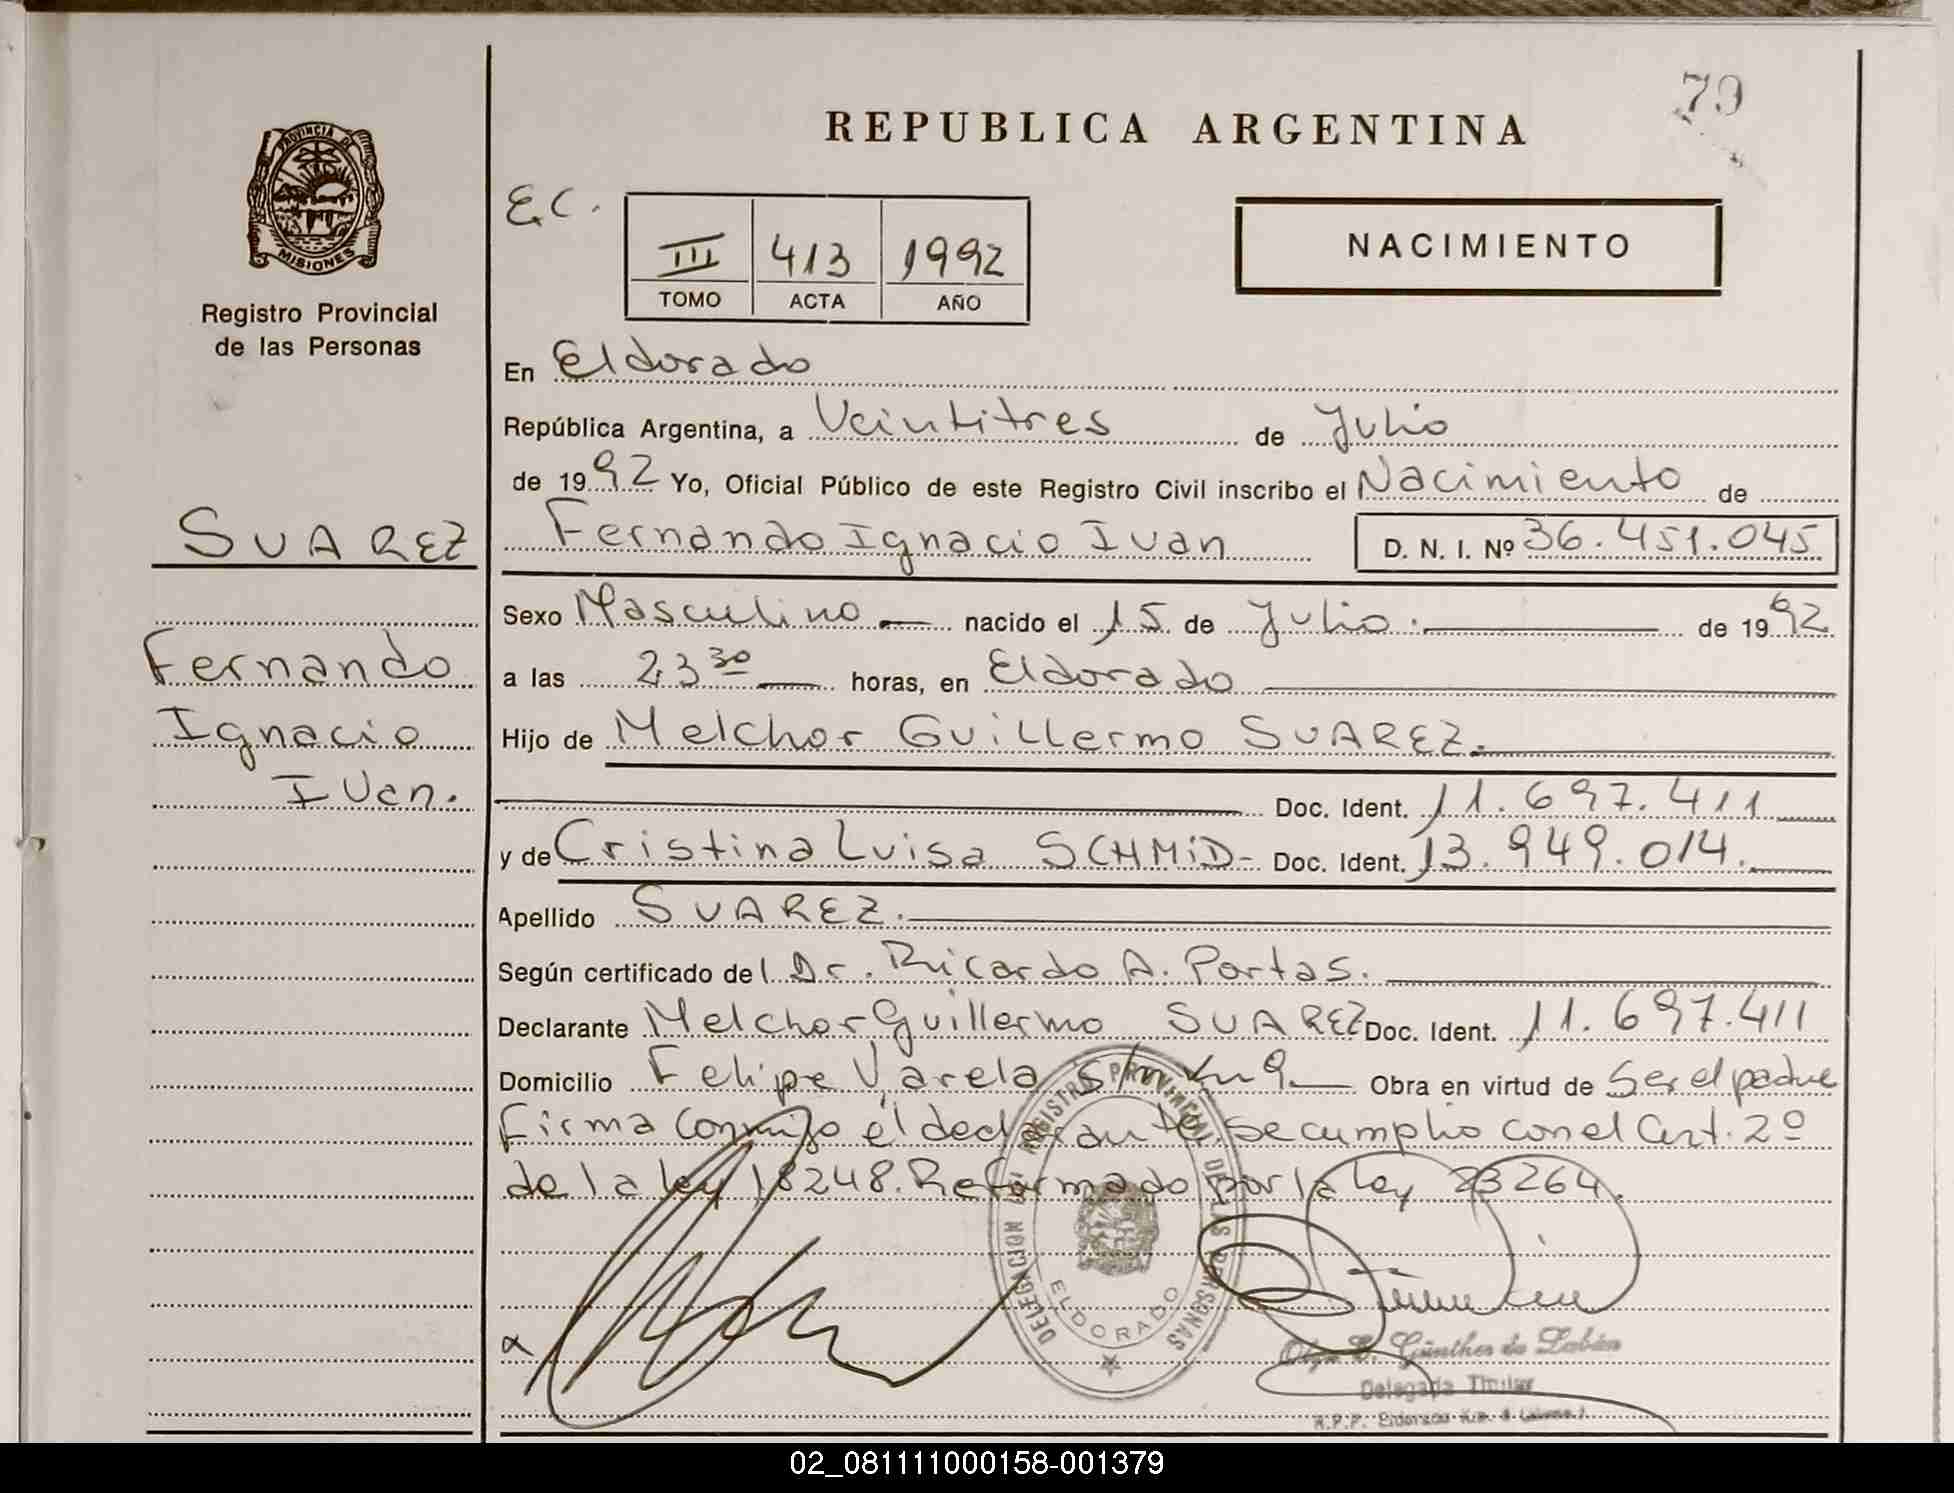 79
REPUBLICA ARGENTINA
PROVINCIA DE MISIONES
Registro Provincial
de las Personas
E.C.
III 413 1992
TOMO ACTA AÑO
NACIMIENTO
En Eldorado
República Argentina, a Veintitres de Julio
de 1992 Yo, Oficial Público de este Registro Civil inscribo el Nacimiento de
Fernando Ignacio Ivan D. N. I. Nº 36.451.045
SUAREZ
Fernando
Ignacio
Ivan.
Sexo Masculino nacido el 15 de Julio. de 1992
a las 23 30 horas, en Eldorado
Hijo de Melchor Guillermo SUAREZ.
Doc. Ident. 11.697.411
y de Cristina Luisa SCHMiD- Doc. Ident. 13.949.014.
Apellido SUAREZ.
Según certificado del Dr. Ricardo A. Portas.
Declarante Melchor Guillermo SUAREZ Doc. Ident. 11.697.411
Domicilio Felipe Varela s/n Km 9 Obra en virtud de Ser el padre
Firma conmigo el declarante, se cumplio con el Art. 2º
de la ley 18248. Reformado por la ley 23264.
DELEGACION REGISTRO PROVINCIAL DE LAS PERSONAS
ELDORADO
Günther de
Delegada Titular
R.P.P. Eldorado Km.
02_081111000158-001379